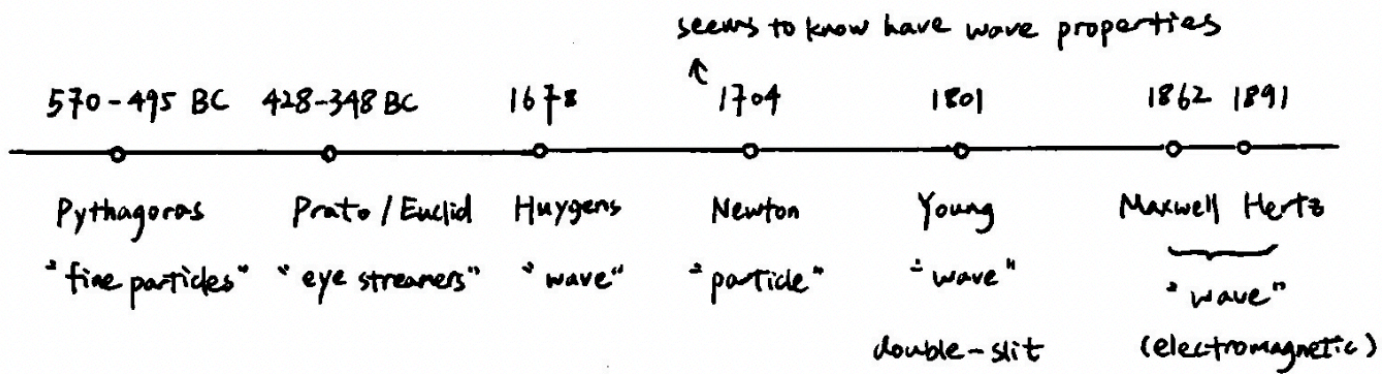 seems to know have wave properties
570-495 BC 428-348 BC 1678 1704 1801 1862 1891
Pythagoras Prato / Euclid Huygens Newton Young Maxwell Hertz
"fine particles" "eye streamers" "wave" "particle" "wave" "wave"
double-slit (electromagnetic)